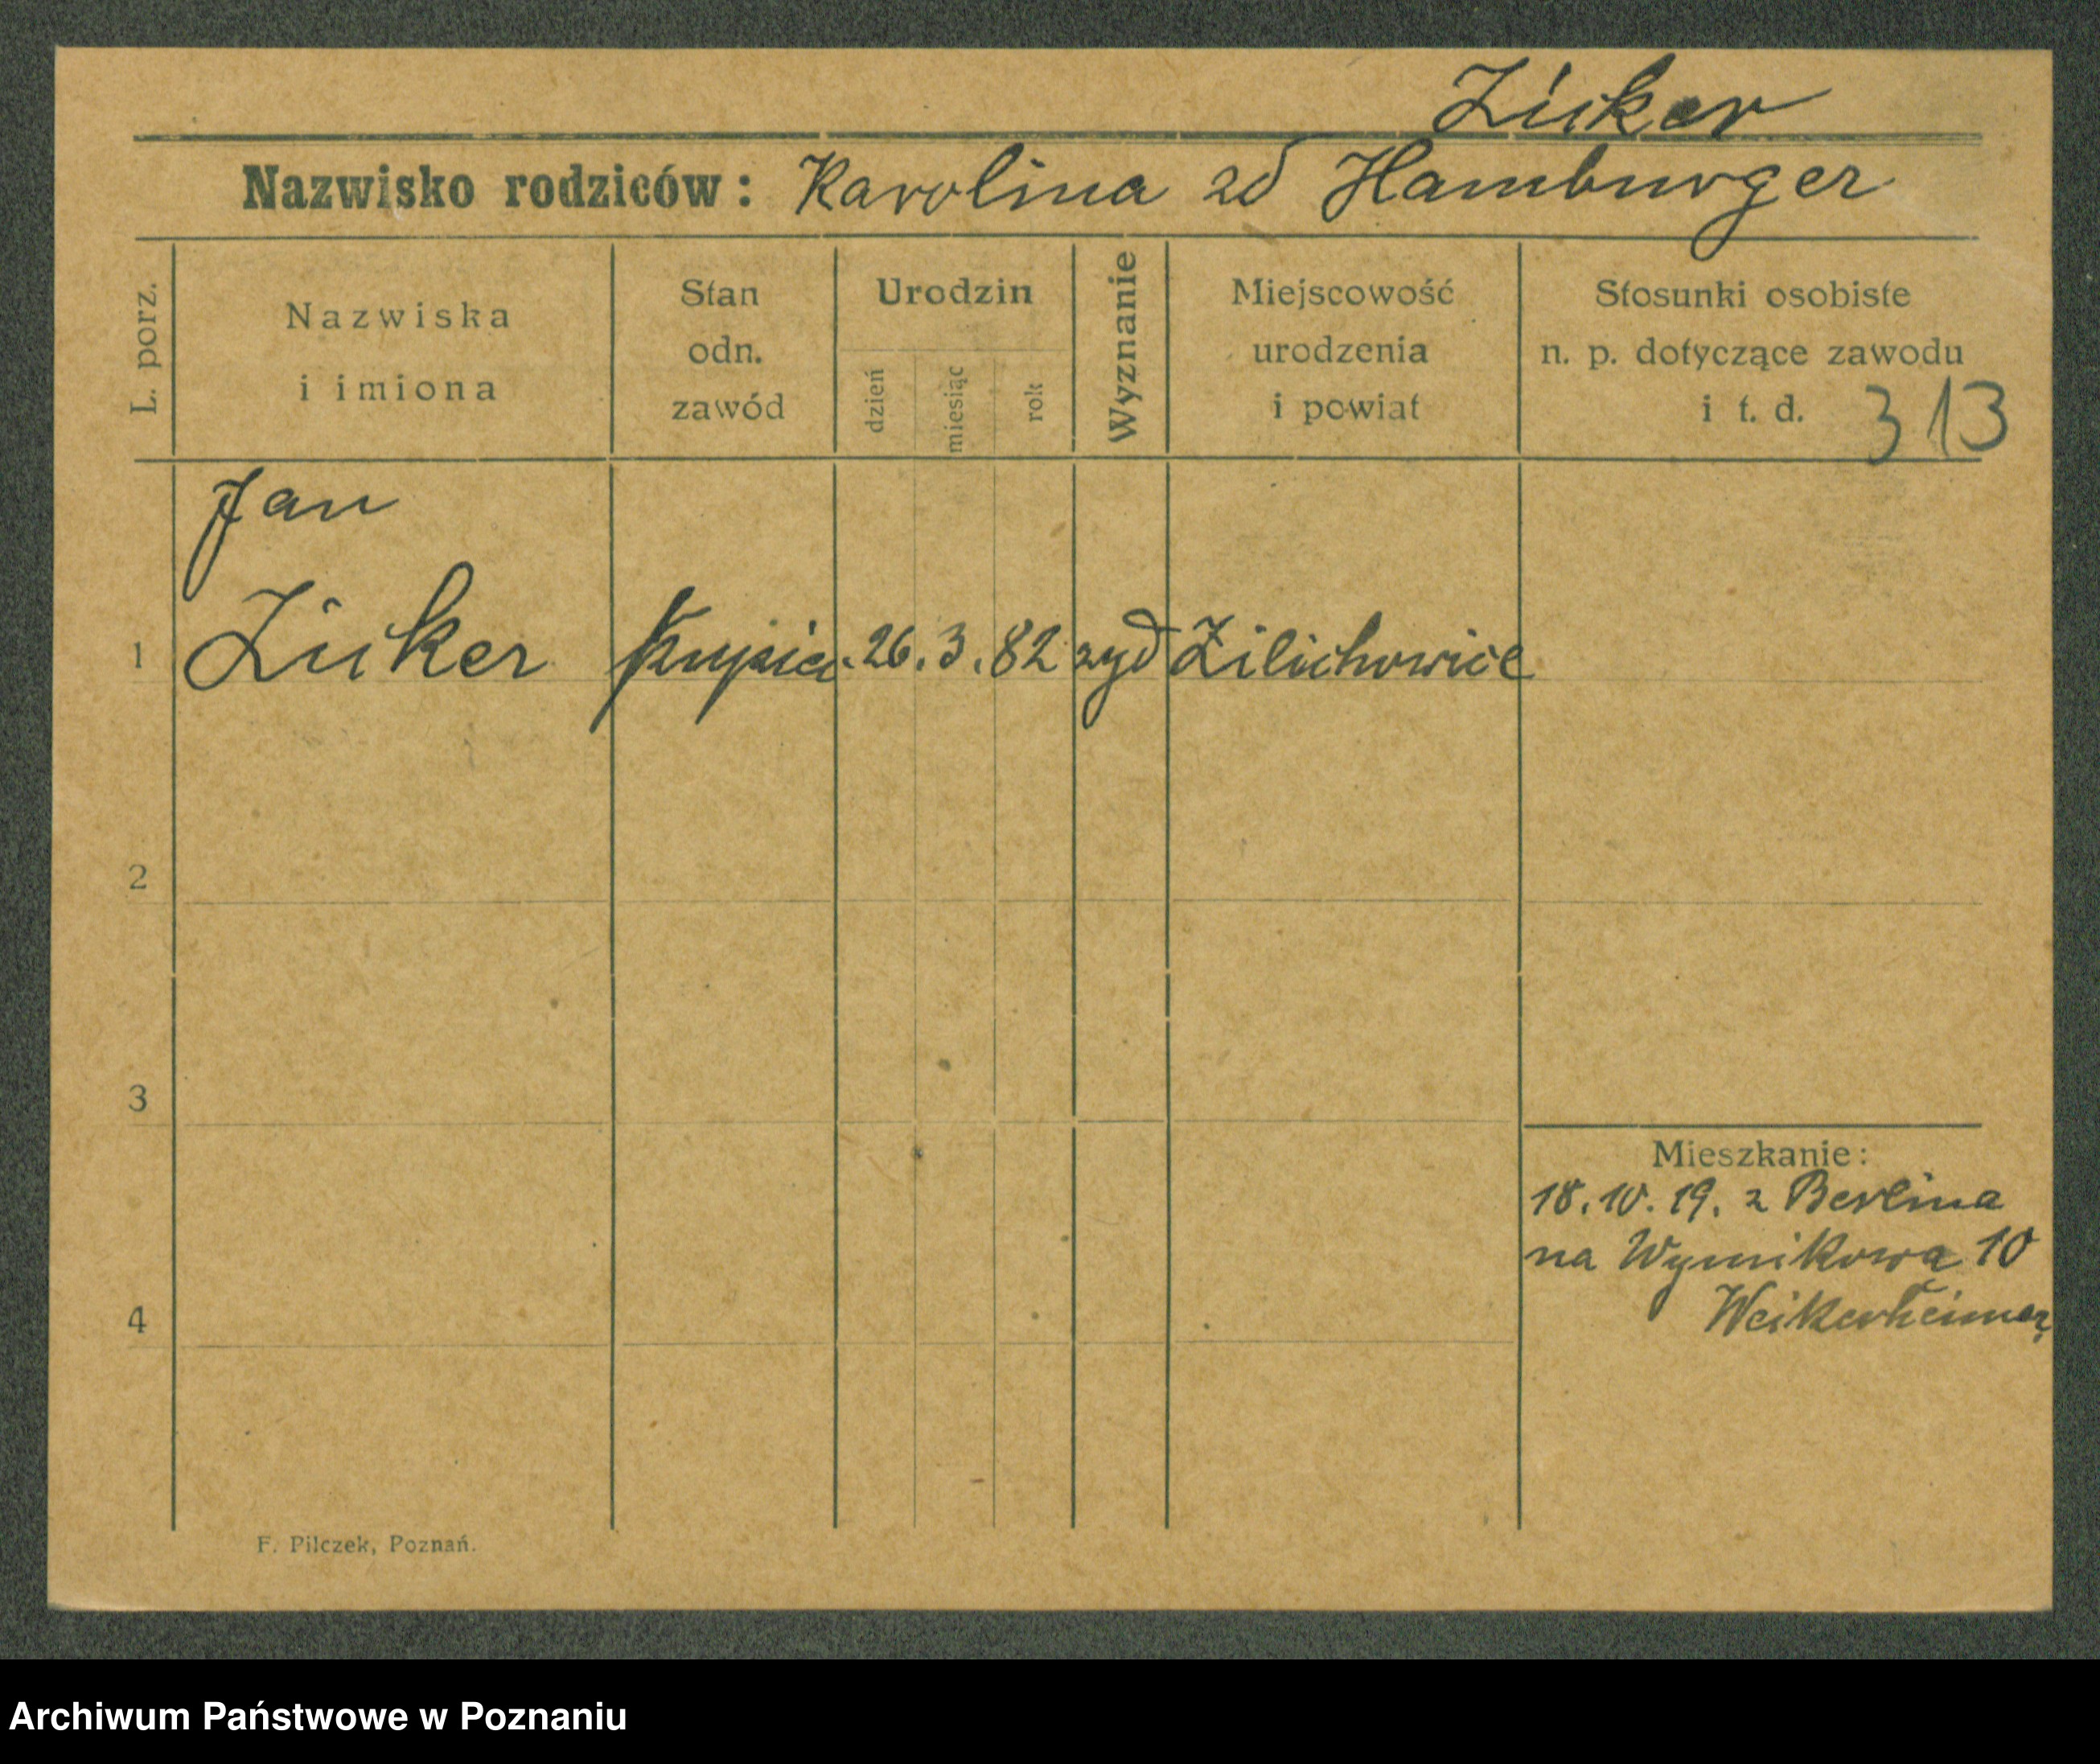 Züker
Nazwisko rodziców: Karolina zd Hamburger
L. porz.
Nazwiska
i imiona
Stan
odn.
zawód
Urodzin
dzień
miesiąc
rok
Wyznanie
Miejscowość
urodzenia
i powiat
Stosunki osobiste
n. p. dotyczące zawodu
i t. d.
313
Jan
1 Züker Kupiec 26. 3. 82 zyd Zilichowice
2
3
4
Mieszkanie:
18. 10. 19. z Berlina
na 10
F. Pilczek, Poznań.
Archiwum Państwowe w Poznaniu